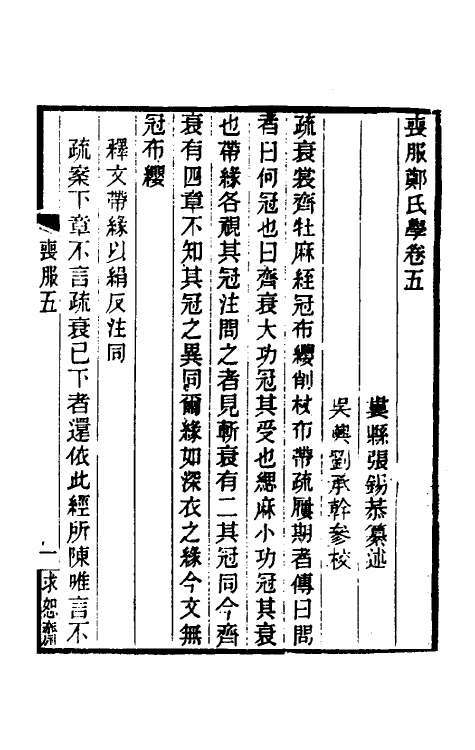 喪服鄭氏學卷五
婁縣張錫恭纂述
吳興劉承幹參校
疏衰裳齊牡麻絰冠布纓削杖布帶疏屨期者傳曰問
者曰何冠也曰齊衰大功冠其受也緦麻小功冠其衰
也帶緣各視其冠注問之者見斬衰有二其冠同今齊
衰有四章不知其冠之異同爾緣如深衣之緣今文無
冠布纓
釋文帶緣以絹反注同
疏案下章不言疏衰已下者還依此經所陳唯言不
喪服五
一
求恕齋